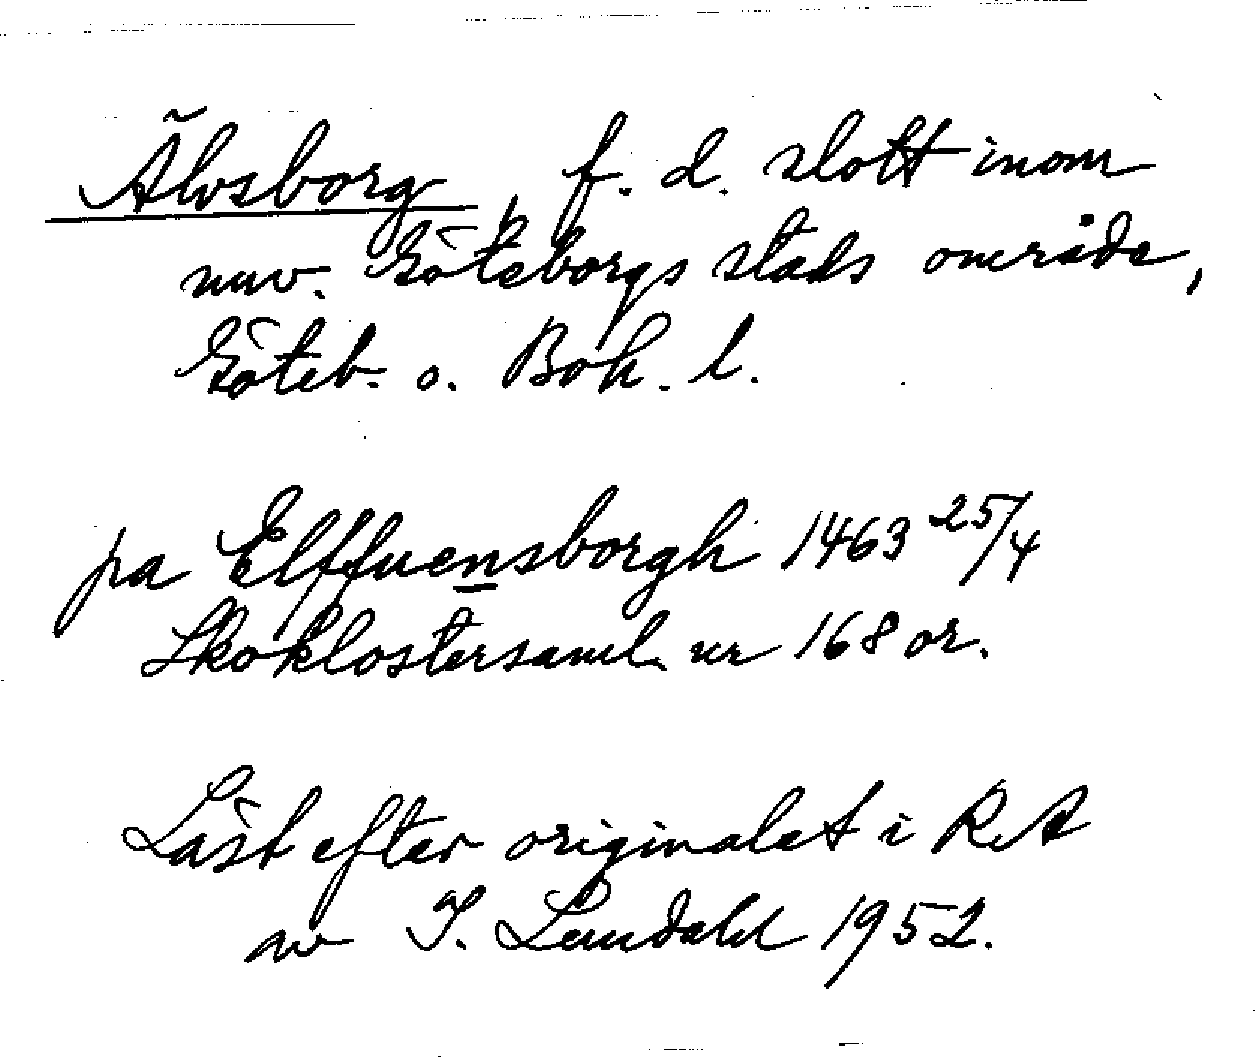 Älvsborg, f. d. slott inom
nuv. Göteborgs stads område,
Göteb. o. Boh. l.
pa Elffuensborgh 1463 25/4
Skoklostersaml. nr 168 or.
Läst efter originalet i RA
av I. Lundahl 1952.